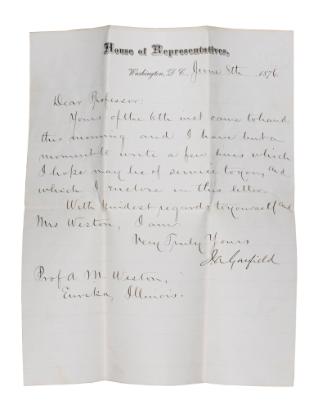 House of Representatives,
Washington, D. C., June 8th 1876
Dear Professor:
Yours of the 6th inst came to hand
this morning and I have but a
moment to write a few lines which
I hope may be of service to you and
which I enclose in this letter.
With kindest regards to yourself and
Mrs Weston, I am
Very Truly Yours
J A Garfield
Prof A. M. Weston,
Eureka, Illinois.